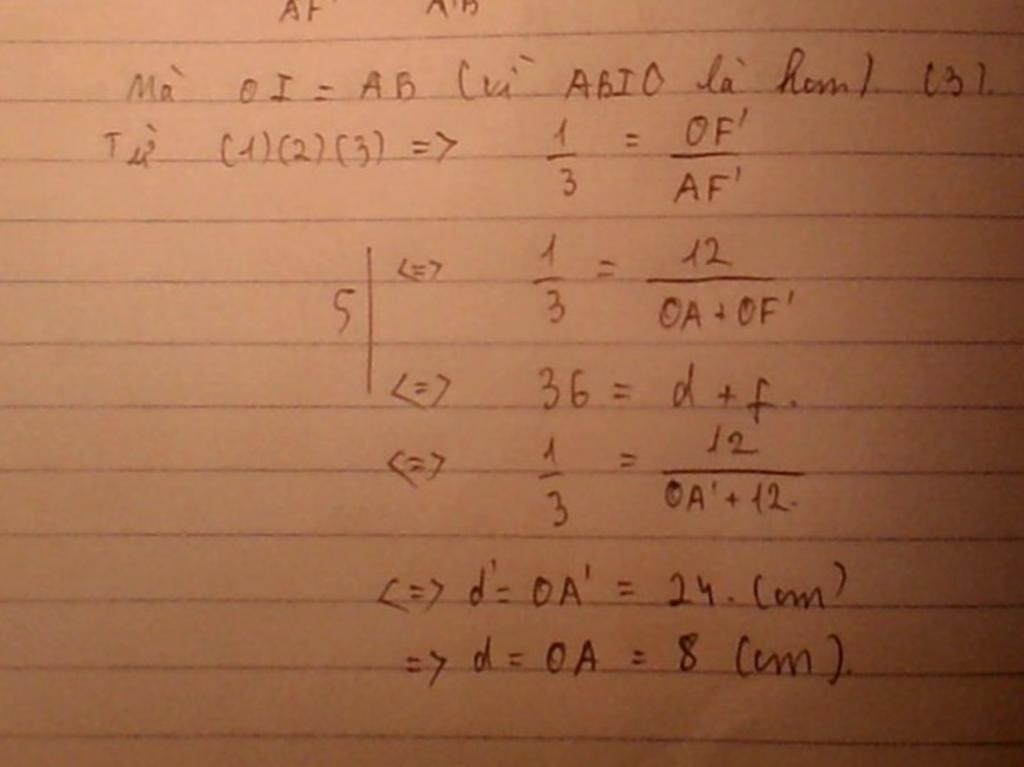 AF' A'B
Mà OI = AB (vì ABIO là hcn). (3).
Từ (1)(2)(3) => 1/3 = OF'/AF'
5 | <=> 1/3 = 12/(OA + OF')
<=> 36 = d + f.
<=> 1/3 = 12/(OA' + 12.)
<=> d' = OA' = 24. (cm)
=> d = OA = 8 (cm).